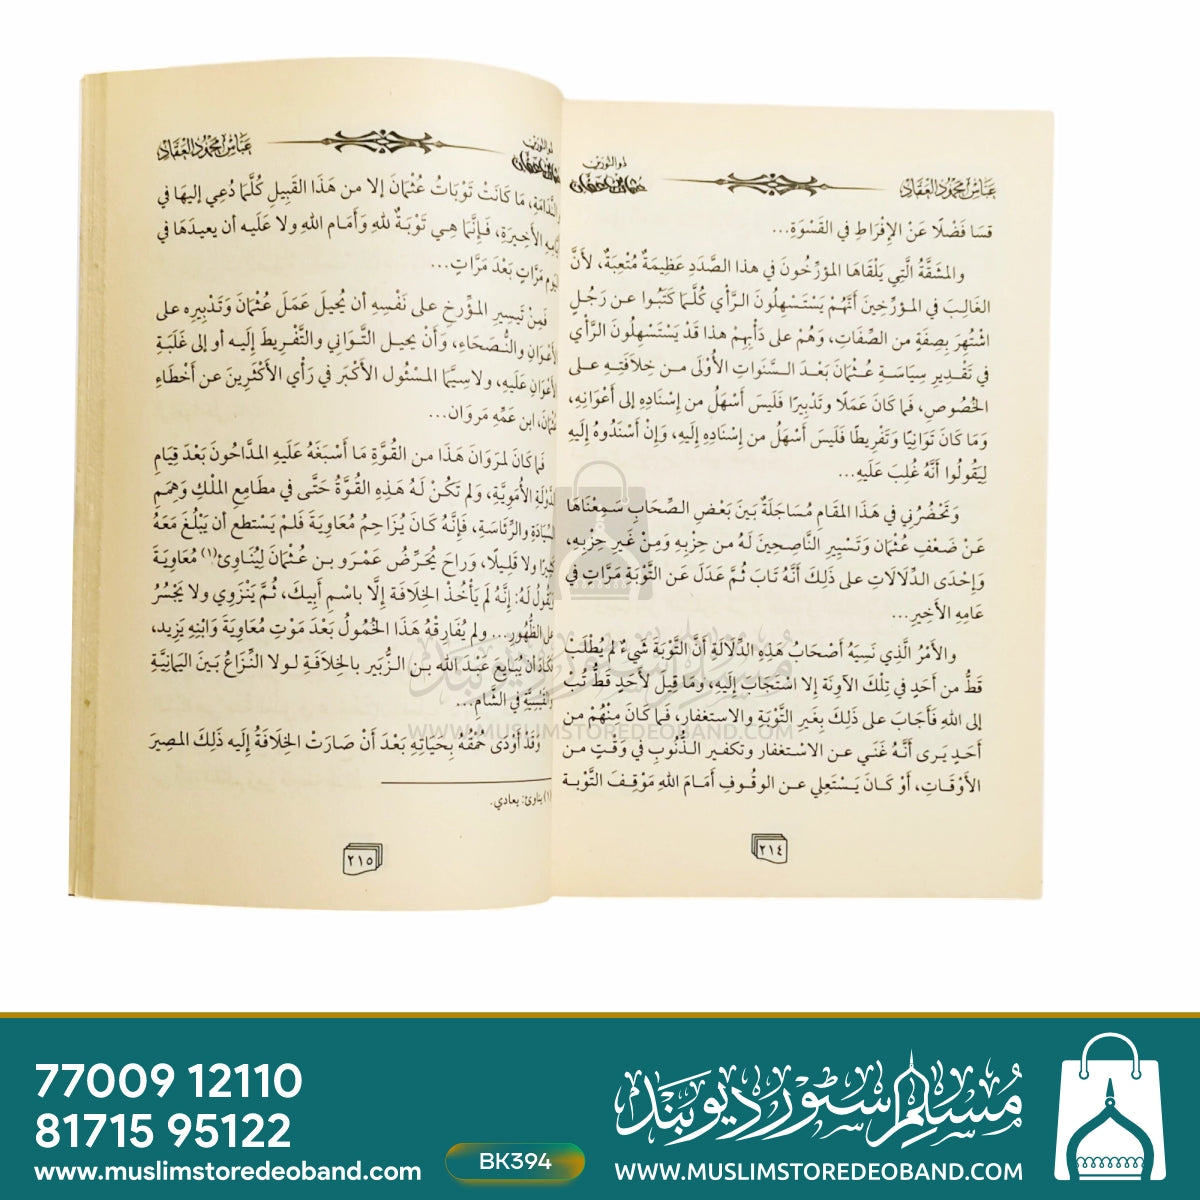 ذو النورين عثمان بن عفان
عَبَّاسْ مَحْمُودْ العَقَّادْ
قسَا فَضْلًا عَنْ الإِفْرَاطِ في القَسْوَةِ...
والمشَقَّةُ الَّتِي يَلْقَاهَا المؤرِّخُونَ في هذا الصَّدَدِ عَظِيمَةٌ مُتْعِبَةٌ، لأَنَّ
الغَالِبَ في المؤرِّخِينَ أَنَّهُمْ يَسْتَسْهِلُونَ الرَّأْي كُلَّمَا كَتَبُوا عن رَجُلٍ
اشْتُهِرَ بِصِفَةٍ من الصِّفَاتِ، وَهُمْ على دَأْبِهِمْ هذا قَدْ يَسْتَسْهِلُونَ الرَّأْي
في تَقْدِيرِ سِيَاسَةِ عُثْمَانَ بَعْدَ السَّنَواتِ الأُوْلَى من خِلَافَتِهِ على
الخُصُوصِ، فَما كَانَ عَمَلًا وتَدْبِيرًا فَلَيسَ أَسْهَلُ من إِسْنَادِهِ إلى أَعْوَانِهِ،
وَمَا كَانَ تَوَانِيًا وَتَفْرِيطًا فَلَيسَ أَسْهَلُ من إِسْنَادِهِ إِلَيهِ، وَإِنْ أَسْنَدُوهُ إِلَيهِ
لِيَقُولُوا أَنَّهُ غُلِبَ عَلَيهِ...
وَتَحْضُرُني في هَذَا المَقَامِ مُسَاجَلَةٌ بَينَ بَعْضِ الصِّحَابِ سَمِعْنَاهَا
عَنْ ضَعْفِ عُثْمَان وَتَسْيِيرِ النَّاصِحِينَ لَهُ من حِزْبِهِ وَمِنْ غَيرِ حِزْبِهِ،
وَإِحْدَى الدِّلَالَاتِ على ذَلِكَ أَنَّهُ تَابَ ثُمَّ عَدَلَ عَن التَّوْبَةِ مَرَّاتٍ في
عَامِهِ الأَخِيرِ...
والأَمْرُ الَّذِي نَسِيَهُ أَصْحَابُ هَذِهِ الدِّلَالَةِ أَنَّ التَّوْبَةَ شَيءٌ لم يُطْلَب
قَطُّ من أَحَدٍ في تِلْكَ الآوِنَةِ إلا اسْتَجَابَ إِلَيهِ، وَمَا قِيلَ لأَحَدٍ قَطُّ تُب
إلى الله فَأَجَابَ على ذَلِكَ بِغَيرِ التَّوْبَةِ والاستغفار، فَما كَانَ مِنْهُمْ من
أَحَدٍ يَرى أَنَّهُ غَنَي عن الاسْتغفار وتكفير الذُّنُوبِ في وَقْتٍ من
الأَوْقَاتِ، أَوْ كَانَ يَسْتَعلِي عن الوقُوفِ أَمَامَ اللهِ مَوْقِفَ التَّوْبَة
٢١٤
ذو النورين
عَبَّاسْ مَحْمُودْ العَقَّادْ
والنَّدَامَةِ، مَا كَانَتْ تَوْبَاتُ عُثْمَانَ إلا من هَذَا القَبِيلِ كُلَّمَا دُعِي إليهَا في
الأَخِيرَةِ، فَإِنَّمَا هِي تَوْبَةٌ للهِ وَأَمَام اللهِ ولا عَلَيه أن يعيدَهَا في
اليوم مَرَّاتٍ بَعْدَ مَرَّاتٍ...
فَمِنْ تَيسِيرِ المؤرِّخِ على نَفْسِهِ أن يُحِيلَ عَمَلَ عُثْمَانَ وَتَدْبِيرِه على
الأَعْوَانِ والنُّصَحَاءِ، وَأَنْ يحيل التَّوَاني والتَّفْريطَ إِلَيه أو إلى غَلَبَةِ
الأَعْوَانِ عَلَيهِ، ولاسِيَّمَا المسْئُول الأَكْبَر في رَأْي الأَكْثَرِينَ عن أَخْطَاءِ
عُثْمَانَ، ابن عَمِّهِ مَروَان...
فَما كَانَ لمَروَانَ هَذَا من القُوَّةِ مَا أَسْبَغَهُ عَلَيهِ المدَّاحُونَ بَعْدَ قِيَامِ
الدَّوْلَةِ الأُمَوِيَّةِ، وَلم تَكُنْ لَهُ هَذِهِ القُوَّةُ حَتَّى في مطَامِعِ الملْكِ وَهِمَمِ
السِّيَادَةِ والرِّئَاسَةِ، فَإِنَّهُ كَانَ يُزَاحِمُ مُعَاوِيَةَ فَلَمْ يَسْتَطع أن يَبْلُغَ مَعَهُ
كَثِيرًا ولا قَلِيلًا، وَراح يُحَرِّضُ عَمْرَو بن عُثْمَانَ لِيُنَاوِئ(١) مُعَاوِيَةَ
ويَقُولُ لَهُ: إِنَّهُ لم يَأْخُذْ الخِلَافَة إِلَّا باسْمِ أَبِيكَ، ثُمَّ يَنْزَوِي ولا يَجْسُرُ
على الظُّهُورِ... ولم يُفَارِقْهُ هَذَا الخُمُولُ بَعْدَ مَوْتِ مُعَاوِيَةَ وَابْنِهِ يَزِيد،
فَكَادَ أن يُبَايِعَ عَبْدَ الله بن الزُّبَير بالخِلَافَةِ لولا النِّزَاعُ بَينَ اليَمَانِيَّةِ
والقَيْسِيَّةِ في الشَّامِ...
وَقَدْ أَوْدَى حُمْقُهُ بِحَيَاتِهِ بَعْدَ أَنْ صَارَتْ الخِلَافَةُ إِلَيه ذَلِكَ المصِيرَ
(١) يناوئ: يعادي.
٢١٥
مسلم سٹور دیوبند
WWW.MUSLIMSTOREDEOBAND.COM
77009 12110
81715 95122
www.muslimstoredeoband.com
BK394
مسلم سٹور دیوبند
WWW.MUSLIMSTOREDEOBAND.COM